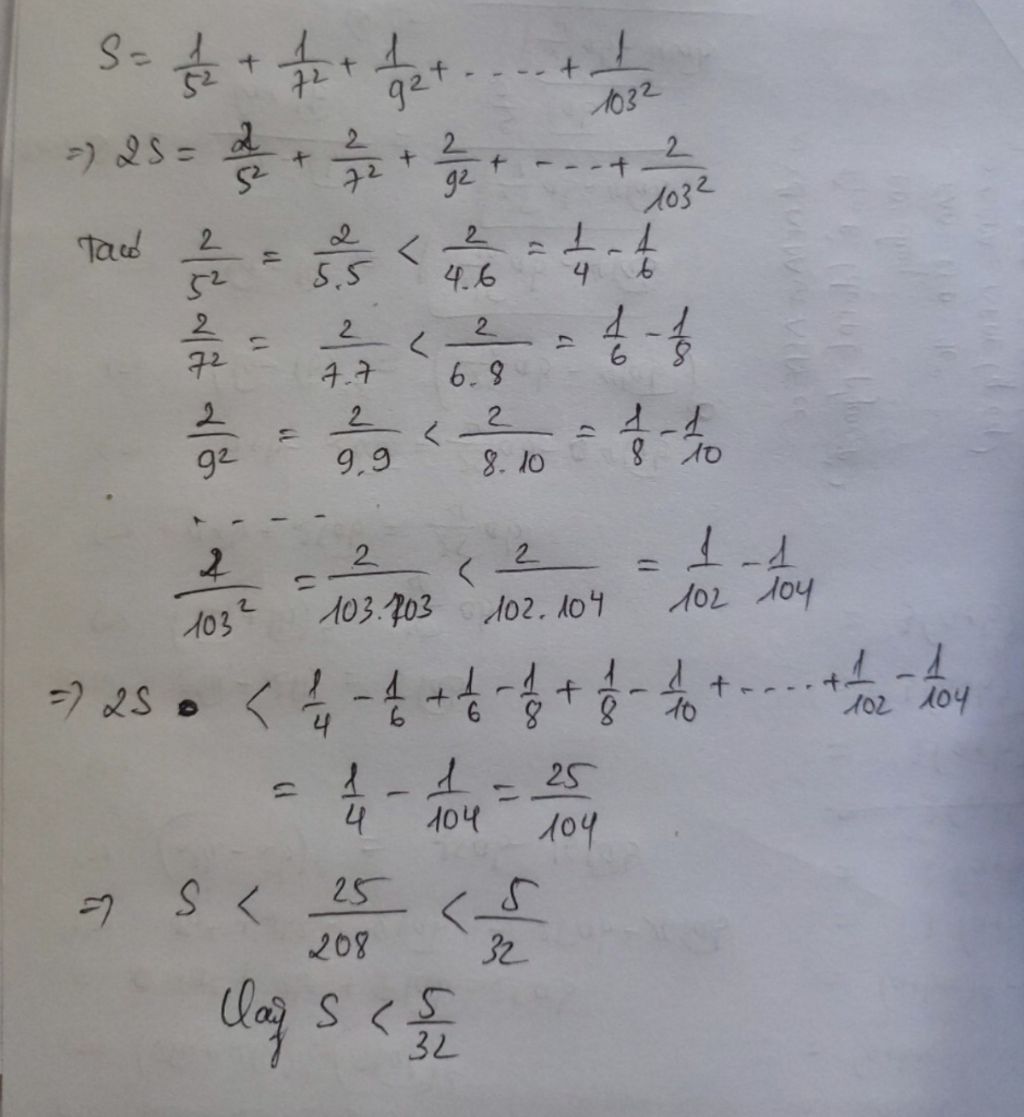 S = 1/5² + 1/7² + 1/9² + ..... + 1/103²
=> 2S = 2/5² + 2/7² + 2/9² + ..... + 2/103²
Ta có 2/5² = 2/5.5 < 2/4.6 = 1/4 - 1/6
2/7² = 2/7.7 < 2/6.8 = 1/6 - 1/8
2/9² = 2/9.9 < 2/8.10 = 1/8 - 1/10
....
2/103² = 2/103.103 < 2/102.104 = 1/102 - 1/104
=> 2S < 1/4 - 1/6 + 1/6 - 1/8 + 1/8 - 1/10 + ..... + 1/102 - 1/104
= 1/4 - 1/104 = 25/104
=> S < 25/208 < 5/32
Vậy S < 5/32